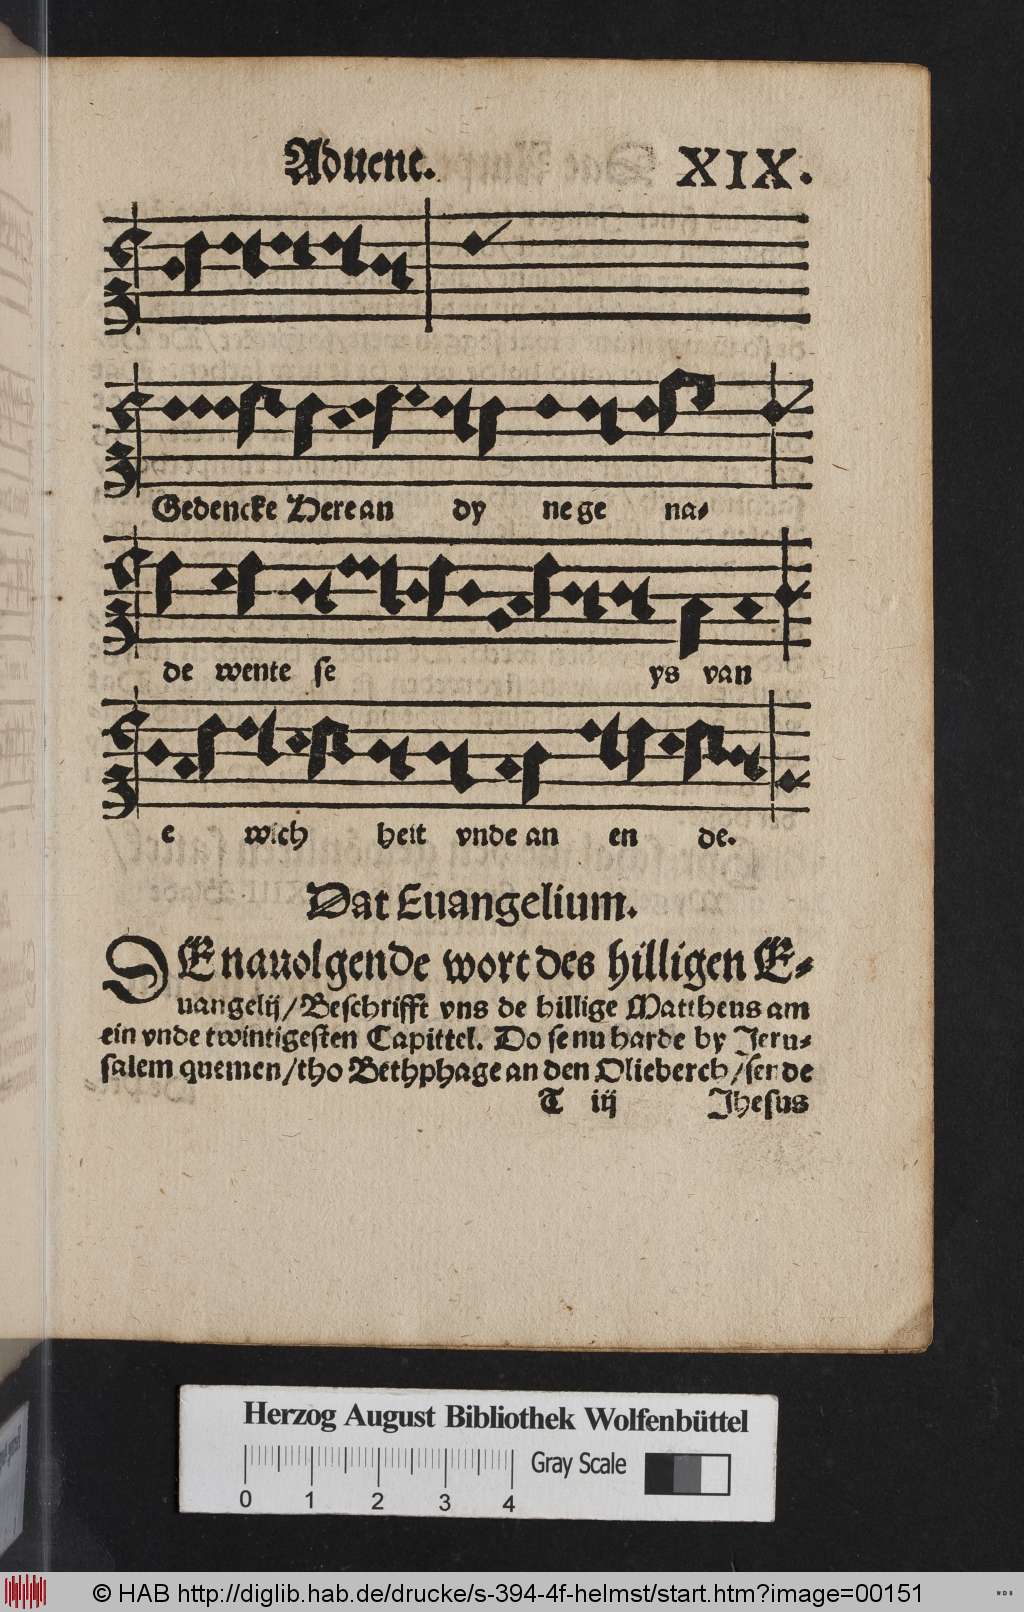 Aduent.
XIX.
Gedencke Here an dy ne ge na⸗
de wente se ys van
e wich heit vnde an en de.
Dat Euangelium.
DE nauolgende wort des hilligen E⸗
uangelij/ Beschrifft vns de hillige Mattheus am
ein vnde twintigesten Capittel. Do se nu harde by Jeru⸗
salem quemen/ tho Bethphage an den Olieberch/ sende
T iij Jhesus
Herzog August Bibliothek Wolfenbüttel
Gray Scale
0 1 2 3 4
© HAB http://diglib.hab.de/drucke/s-394-4f-helmst/start.htm?image=00151